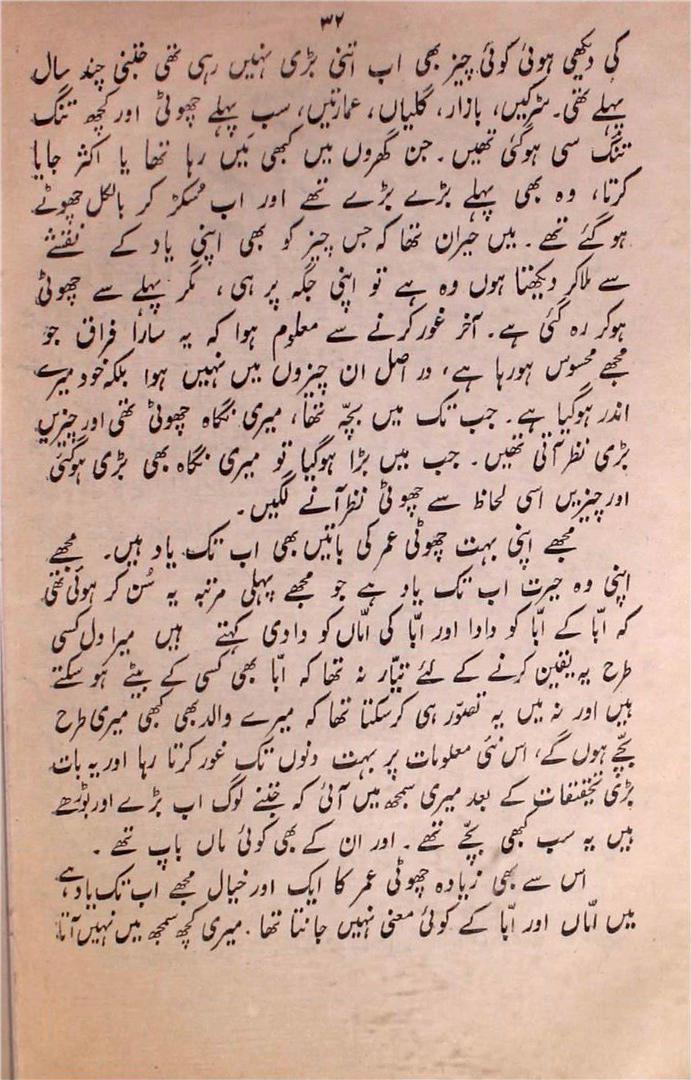 ۳۲
کی دیکھی ہوئی کوئی چیز بھی اب اتنی بڑی نہیں رہی تھی جتنی چند سال
پہلے تھی۔ سڑکیں، بازار، گلیاں، عمارتیں، سب پہلے چھوٹی اور کچھ تنگ
تنگ سی ہوگئی تھیں۔ جن گھروں میں کبھی میں رہا تھا یا اکثر جایا
کرتا، وہ بھی پہلے بڑے بڑے تھے اور اب سکڑ کر بالکل چھوٹے
ہو گئے تھے۔ میں حیران تھا کہ جس چیز کو بھی اپنی یاد کے نقشے
سے ملاکر دیکھتا ہوں وہ ہے تو اپنی جگہ پر ہی، مگر پہلے سے چھوٹی
ہوکر رہ گئی ہے۔ آخر غور کرنے سے معلوم ہوا کہ یہ سارا فراق جو
مجھے محسوس ہورہا ہے، در اصل ان چیزوں میں نہیں ہوا بلکہ خود میرے
اندر ہوگیا ہے۔ جب تک میں بچّہ تھا، میری نگاہ چھوٹی تھی اور چیزیں
بڑی نظر آتی تھیں۔ جب میں بڑا ہوگیا تو میری نگاہ بھی بڑی ہوگئی
اور چیزیں اسی لحاظ سے چھوٹی نظر آنے لگیں۔
مجھے اپنی بہت چھوٹی عمر کی باتیں بھی اب تک یاد ہیں۔ مجھے
اپنی وہ حیرت اب تک یاد ہے جو مجھے پہلی مرتبہ یہ سُن کر ہوئی تھی
کہ ابّا کے ابّا کو دادا اور ابّا کی امّاں کو دادی کہتے ہیں میرا دل کسی
طرح یہ یقین کرنے کے لئے تیّار نہ تھا کہ ابّا بھی کسی کے بیٹے ہو سکتے
ہیں اور نہ میں یہ تصوّر ہی کرسکتا تھا کہ میرے والد بھی کبھی میری طرح
بچّے ہوں گے، اس نئی معلومات پر بہت دنوں تک غور کرتا رہا اور یہ بات
بڑی تحقیقات کے بعد میری سمجھ میں آئی کہ جتنے لوگ اب بڑے اور بوڑھے
ہیں یہ سب کبھی بچّے تھے۔ اور ان کے بھی کوئی ماں باپ تھے۔
اس سے بھی زیادہ چھوٹی عمر کا ایک اور خیال مجھے اب تک یاد ہے
میں امّاں اور ابّا کے کوئی معنی نہیں جانتا تھا۔ میری کچھ سمجھ میں نہیں آتا